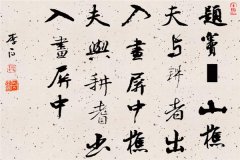 題竇■山樵
夫与耕者出
入畫屏中樵
夫與耕者出
入畫屏中
李白